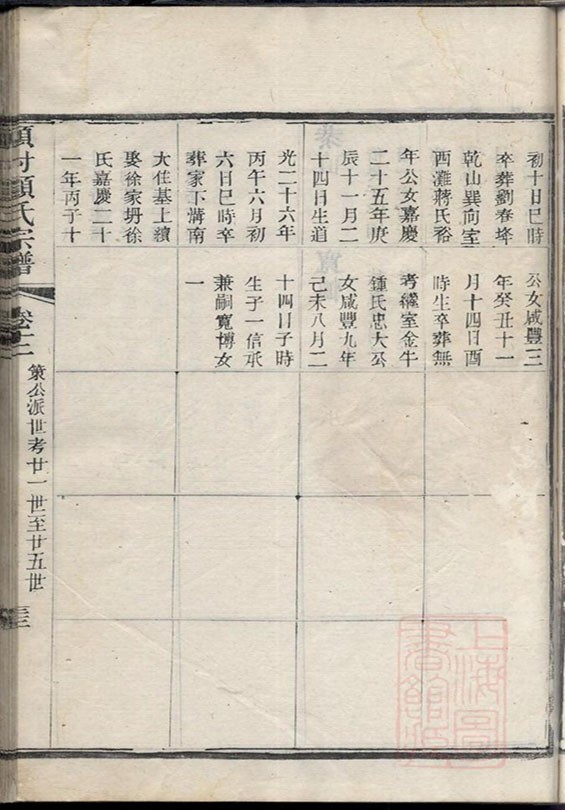 初十日巳時
卒葬劉春埄
乾山巽向室
西灘蔣氏裕
年公女嘉慶
二十五年庚
辰十一月二
十四日生道
光二十六年
丙午六月初
六日巳時卒
葬家下溝南
大住基上續
娶徐家坍徐
氏嘉慶二十
一年丙子十
公女咸豐三
年癸丑十一
月十四日酉
時生卒葬無
考繼室金牛
鍾氏忠大公
女咸豐九年
己未八月二
十四日子時
生子一信承
兼嗣寬博女
一
項村項氏宗譜
卷十二
策公派世考廿一世至廿五世
三十三
上海圖書館藏